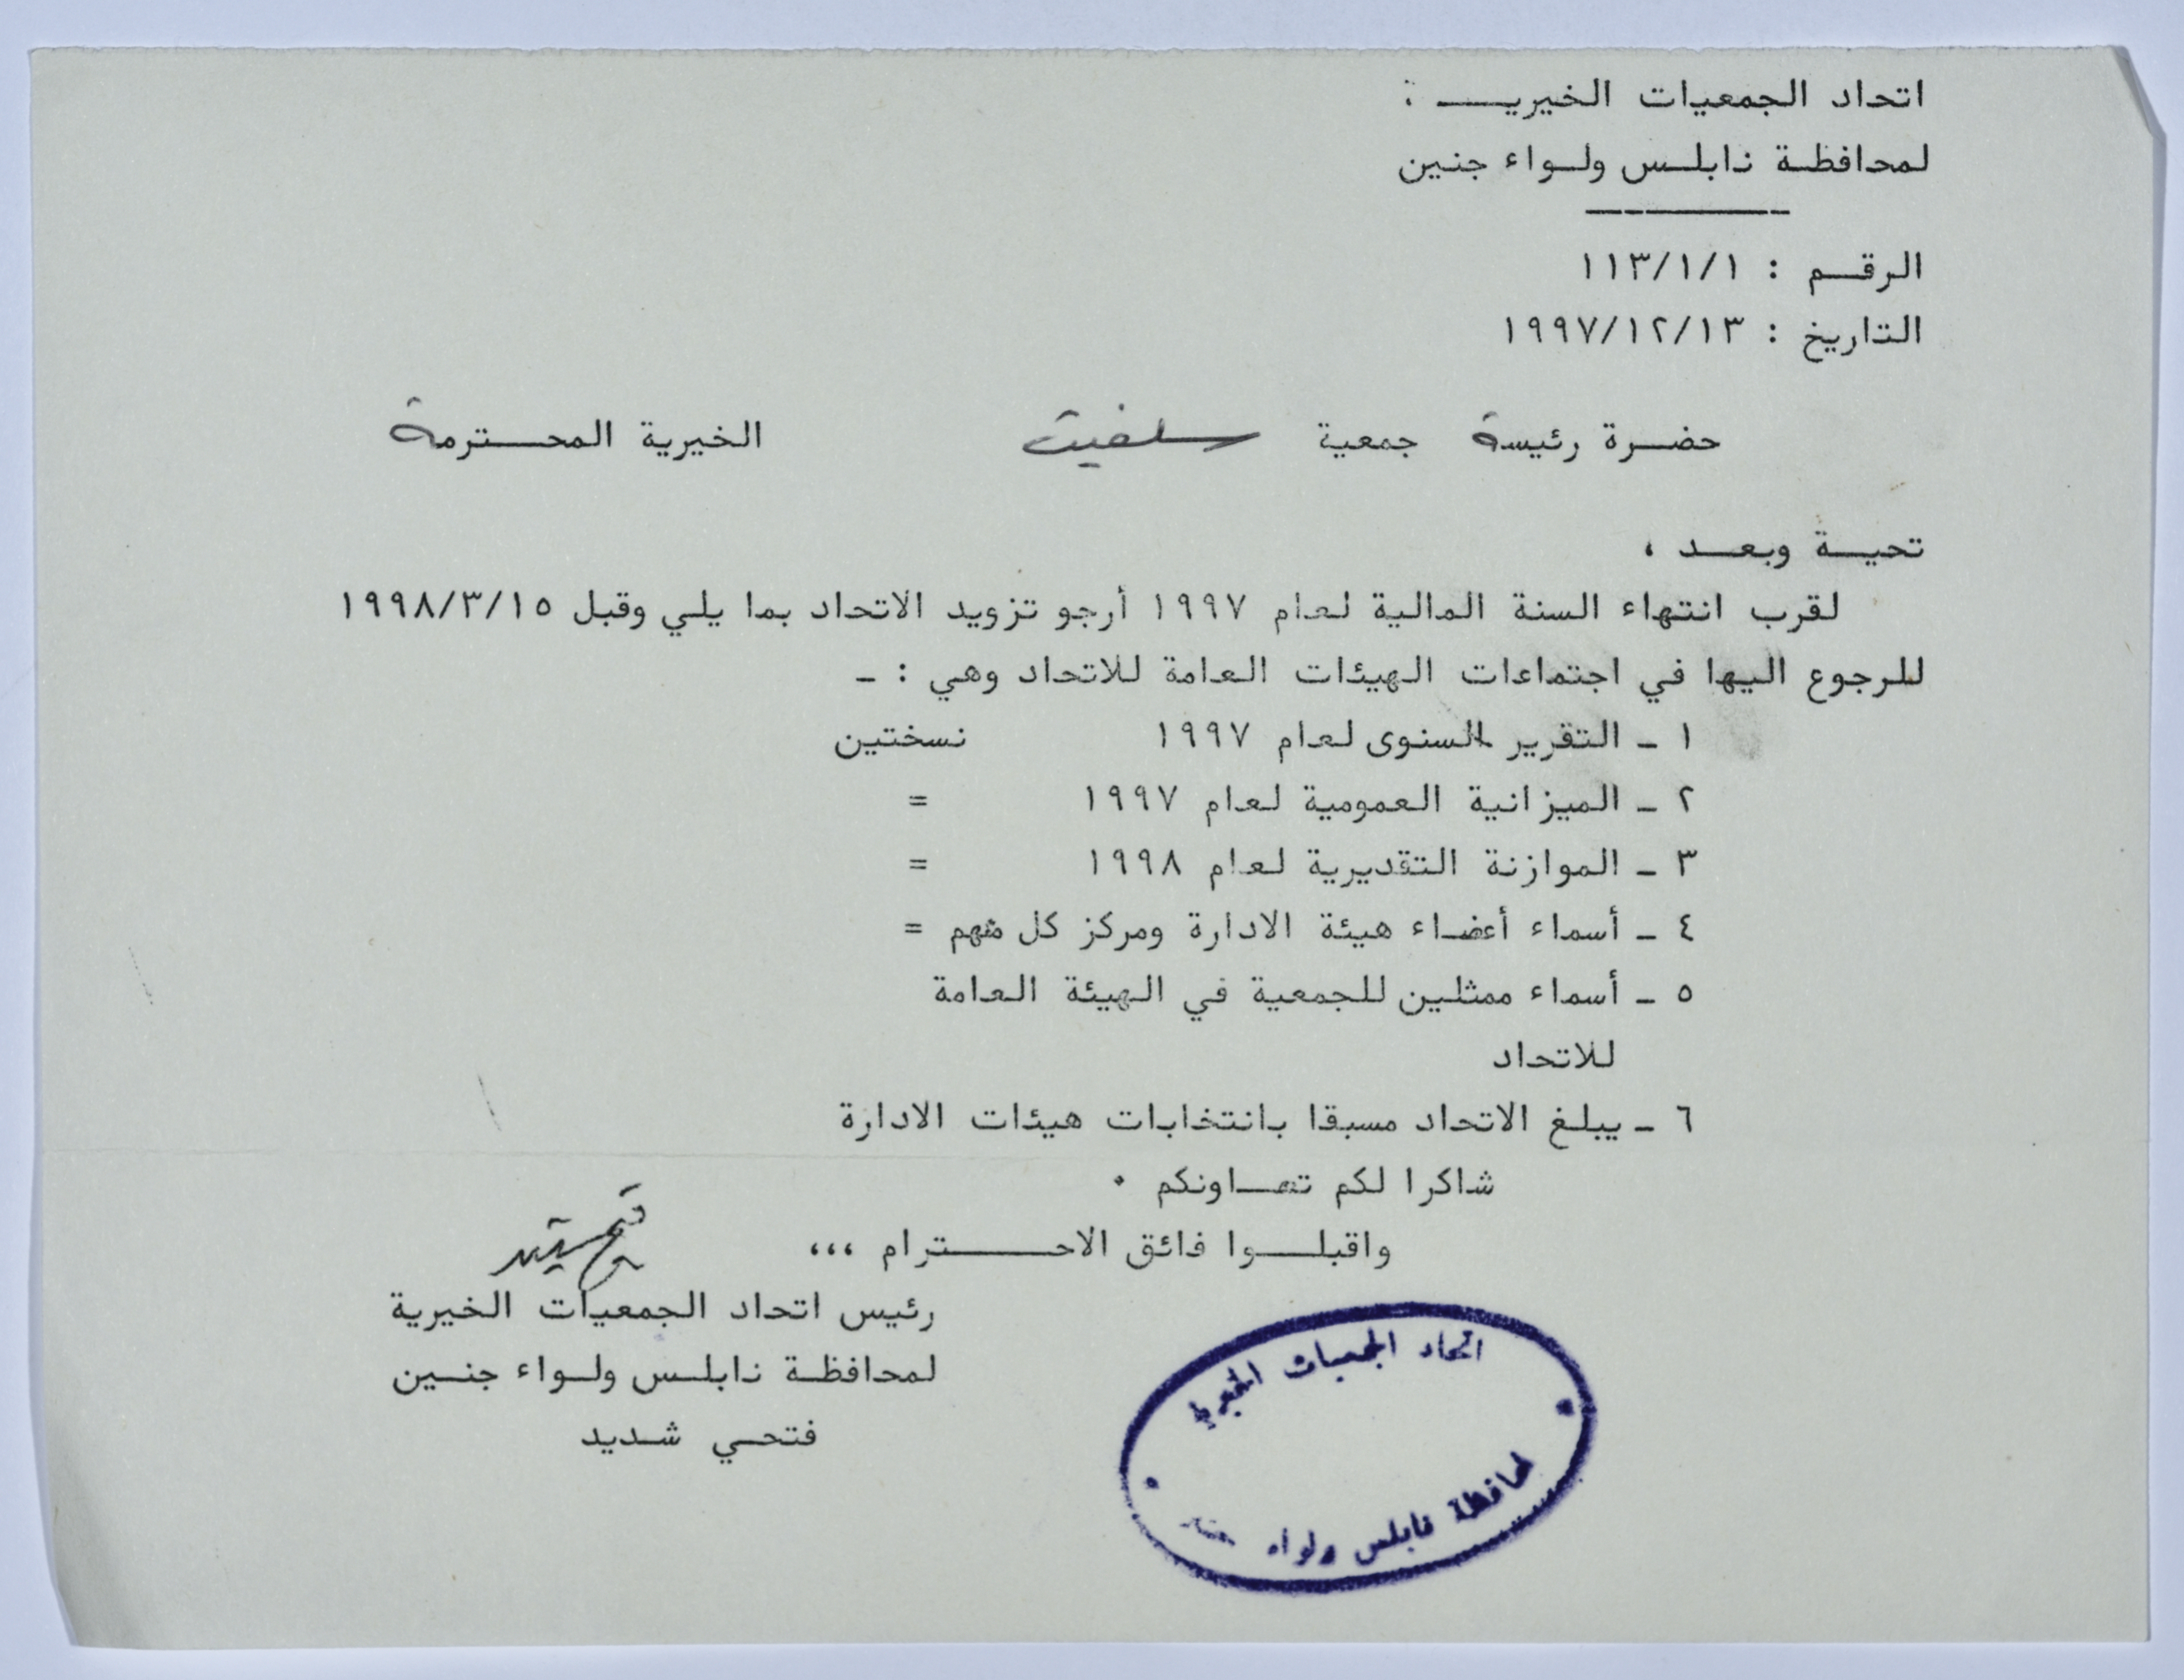 اتحاد الجمعيات الخيريـــة
لمحافظـة نابلـس ولـواء جنين
الرقـــم : ١١٣/١/١
التاريخ : ١٩٩٧/١٢/١٣
حضـرة رئيسة جمعية سلفيت الخيرية المحـــترمة
تحيــة وبعــد ،
لقرب انتهاء السنة المالية لعام ١٩٩٧ أرجو تزويد الاتحاد بما يلي وقبل ١٩٩٨/٣/١٥
للرجوع اليها في اجتماعات الهيئات العامة للاتحاد وهي : ـ
١ ـ التقرير السنوى لعام ١٩٩٧ نسختين
٢ ـ الميزانية العمومية لعام ١٩٩٧ =
٣ ـ الموازنة التقديرية لعام ١٩٩٨ =
٤ ـ أسماء أعضاء هيئة الادارة ومركز كل منهم =
٥ ـ أسماء ممثلين للجمعية في الهيئة العامة
للاتحاد
٦ ـ يبلغ الاتحاد مسبقا بانتخابات هيئات الادارة
شاكرا لكم تعـــاونكم ٠
واقبلـــوا فائق الاحـــــترام ،،،
رئيس اتحاد الجمعيات الخيرية
لمحافظـة نابلـس ولـواء جنـين
فتحـي شـديد
اتحاد الجمعيات الخيرية
لمحافظة نابلس ولواء جنين